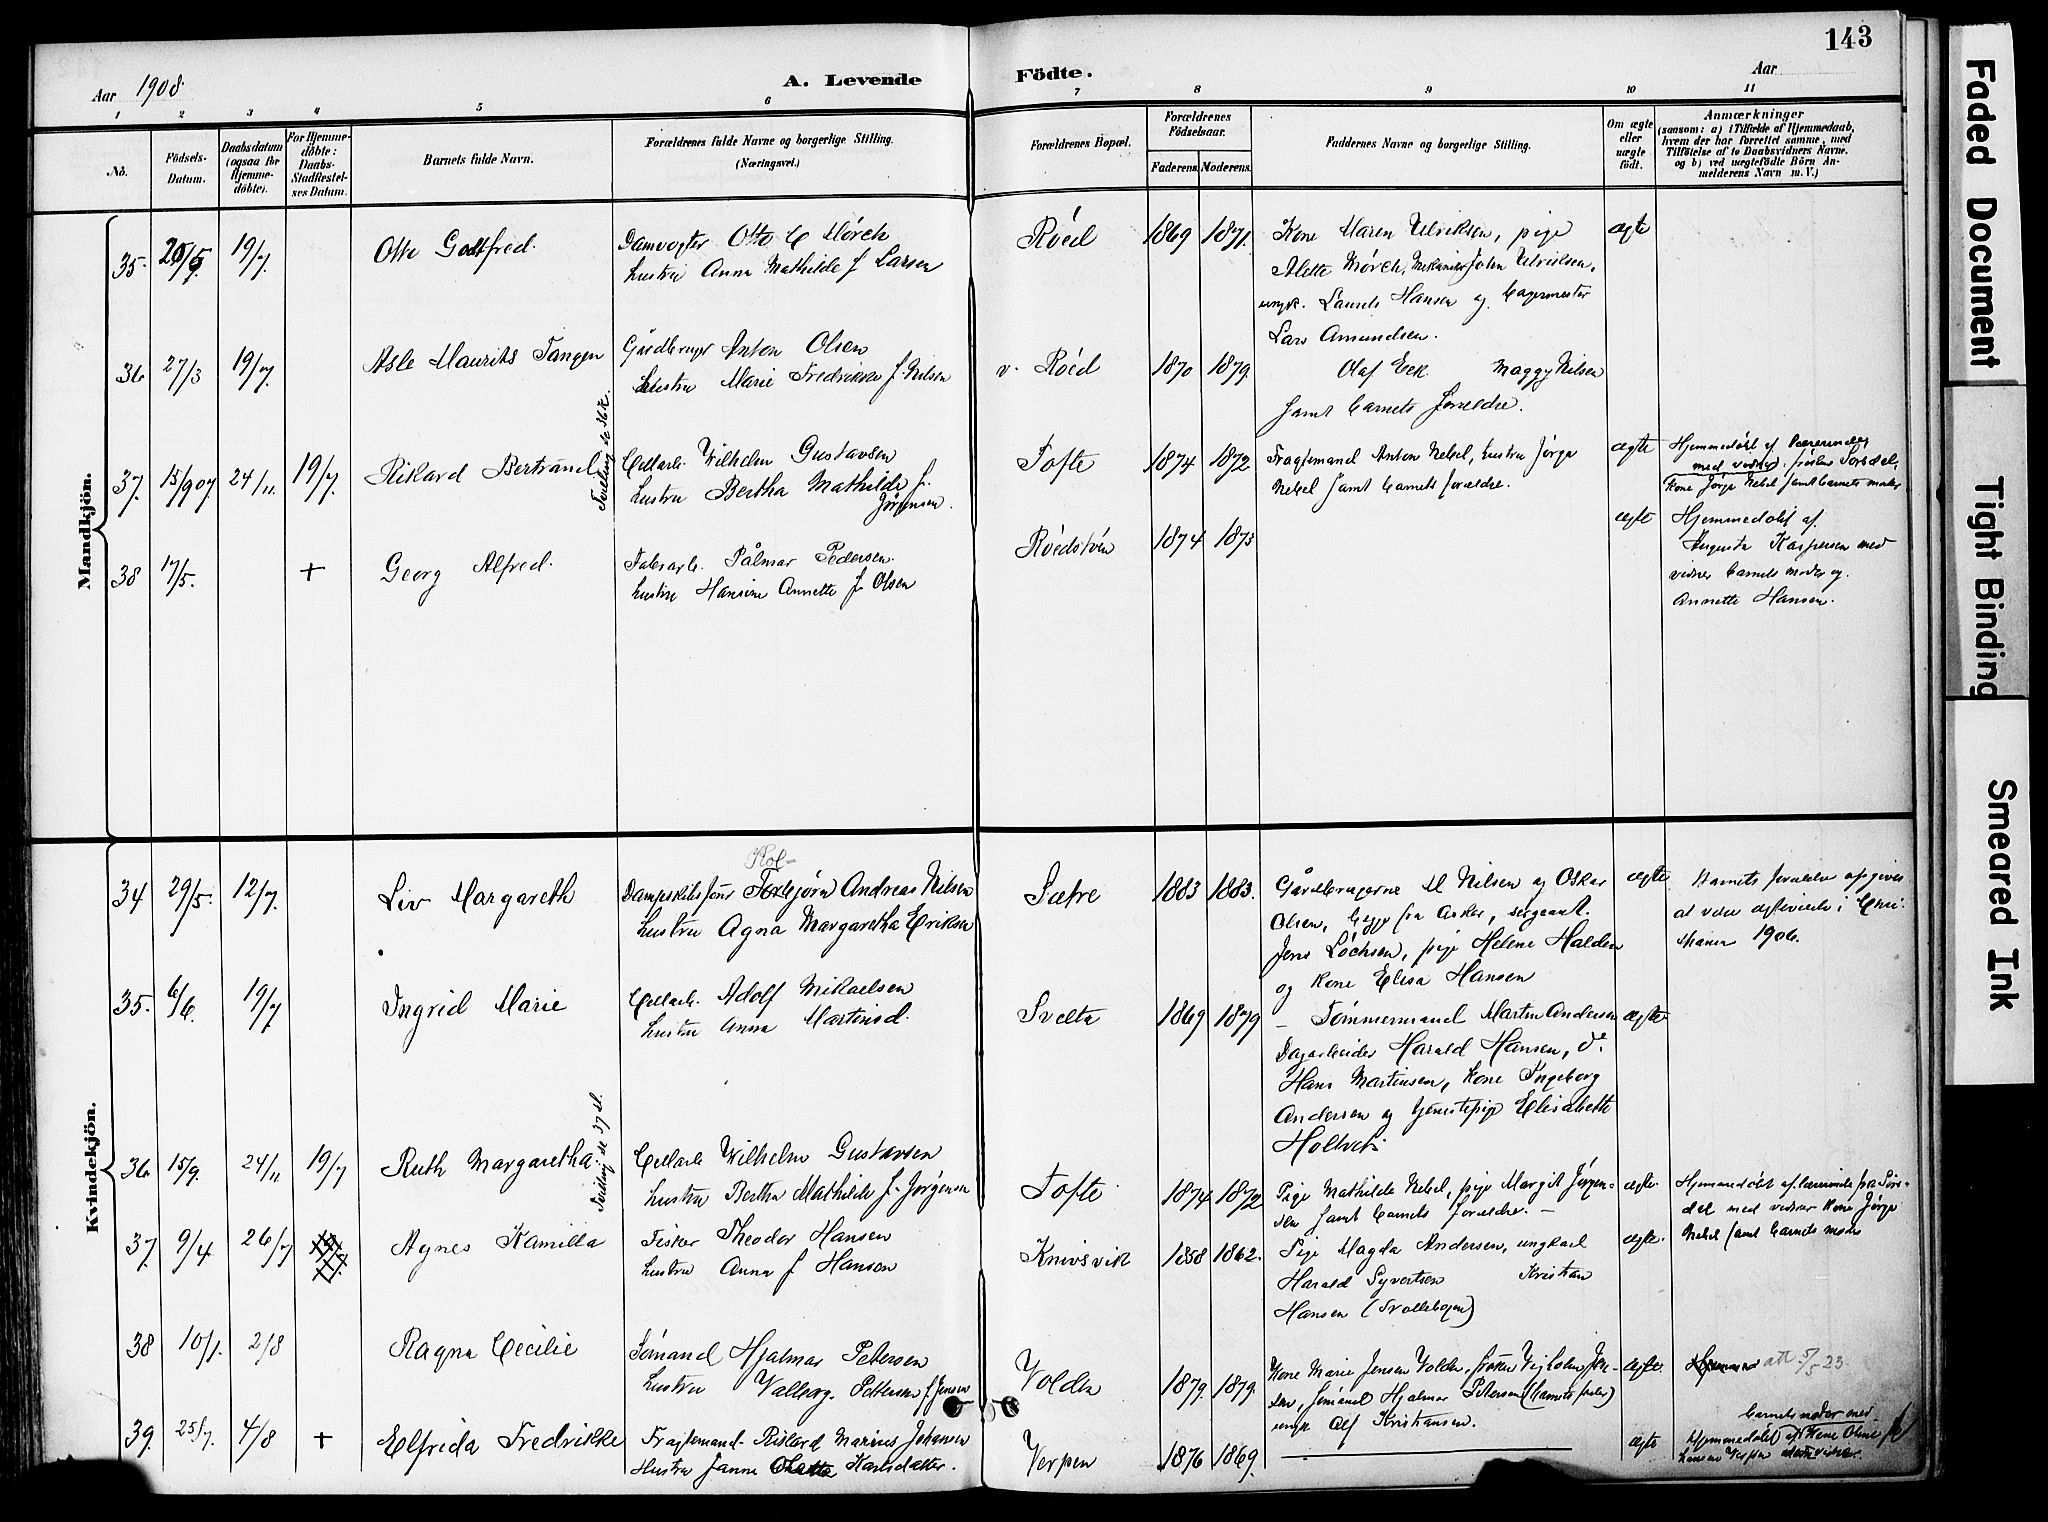 143
Aar 1908
A. Levende
Födte.
Aar
1 2 3 4 5 6 7 8 9 10 11
No.
Födsels-
Datum.
Daabsdatum
(ogsaa for
Hjemme-
döbte).
For Hjemme-
döbte:
Daabs-
Stadfestel-
ses Datum.
Barnets fulde Navn.
Forældrenes fulde Navne og borgerlige Stilling.
(Næringsvei.)
Forældrenes Bopæl.
Forældrenes
Födselsaar.
Faderens. Moderens.
Faddernes Navne og borgerlige Stilling.
Om ægte
eller
uægte
födt.
Anmærkninger
(saasom: a) i Tilfælde af Hjemmedaab,
hvem der har forrettet samme, med
Tilföielse af to Daabsvidners Navne.
og b) ved uægtefödte Börn An-
melderens Navn m. V.)
Mandkjön.
35. 19/7 Otto Gottfred.
Damvogter Otto C Mörch
hustru Anna Mathilde f Larsen
Röed 1869 1871.
Kone Maren Ulriksen, pige
Alette Mörch, Mekaniker John Ulriksen,
ungk. Laurits Hansen og Lagermester
Lars Amundsen.
ægte
36 27/3 19/7. Asle Maurits Tangen
Gårdbruger Anton Olsen
Hustru Marie Fredrikke f. Nilsen
v. Röed 1870 1879.
Olaf Eek Maggy Nilsen
samt barnets forældre.
37. 15/9 07 24/11. 19/7. Rikard Bertrand
Tvilling de 36 K.
Cellarb. Wilhelm Gustavsen
hustru Bertha Mathilde f.
Jörgensen.
Tofte 1874 1872
Fragtemand Anton Nebel, hustru Jörga
Nebel samt barnets forældre.
ægte
Hjemmedöbt af Lærerinde
med vidner: fröken Sorsdal,
Kone Jörga Nebel samt barnets moder
38 17/5. + Georg Alfred.
Fabrarb. Pålmar Pedersen.
hustru Hansine Annette f. Olsen
Röedstöen 1874 1873
ægte
Hjemmedöbt af
Augusta Kaspersen med
vidner barnets moder og
Annette Hansen.
Kvindekjön.
34 29/5. 12/7. Liv Margareth
Kol-
Torbjörn Andreas Nilsen
hustru Agna Margaretha Eriksen
Sætre 1883 1883.
Gårdbrugerne M Nilsen og Oskar
Olsen, begge fra Asker, sergeant
Jens Löchsen, pige Helene Halden
og Kone Elisa Hansen
ægte
Barnets forældre opgives
at være ægteviede i Chri-
stiania 1906.
35. 6/6. 19/7 Ingrid Marie
Cellarb. Adolf Mikaelsen
hustru Anna Martinsd.
Svelta 1869 1879
– Tömmermand Martin Andersen
Dagarbeider Harald Hansen, do
Hans Martinsen, Kone Ingeborg
Andersen og Tjenestepige Elisabeth
Holtvet.
ægte
36 15/9. 24/11 19/7 Ruth Margaretha.
Tvilling de 37 K.
Cellarb Wilhelm Gustavsen
hustru Bertha Mathilde f. Jörgensen
Tofte 1874 1872
Pige Mathilde Nebel, pige Margit Jörgen-
sen samt barnets forældre. –
ægte.
Hjemmedöbt af lærerinde fra Sörs-
dal med vidner Kone Jörga
Nebel samt barnets moder
37. 9/4 26/7 Agnes Kamilla
Fisker Theodor Hansen
hustru Anna f Hansen
Knivsvik 1858 1862.
Pige Magda Andersen, ungkarl
Harald Syvertsen Kristian
Hansen (Svollebogen)
ægte.
38 10/1. 2/8 Ragna Cecilie
Sömand Hjalmar Petersen
hustru Valborg Pettersen f. Jensen
Volden 1879. 1879.
Kone Marie Jensen Volden, fröken Jen-
sen, sömand Hjalmar Petersen (barnets fader)
ungk Alf Kristiansen.
ægte.
att. 5/5 23.
39. 25/7. 4/8 + Elfrida Fredrikke
Fragtemand Rikard Marius Johansen
Hustru Janna Karlsdatter.
Verpen 1876 1869.
ægte
barnets moder med
Hjemmedöbt af Kone Oline
Hansen Verpen
Faded Document
Tight Binding
Smeared Ink